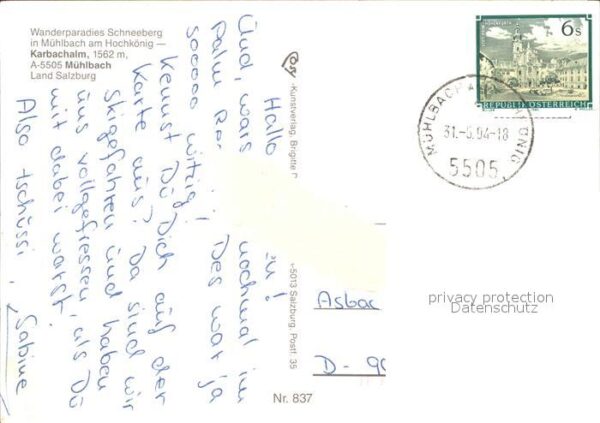 Wanderparadies Schneeberg
in Mühlbach am Hochkönig —
Karbachalm, 1562 m,
A-5505 Mühlbach
Land Salzburg
Hallo
Und, wars nochmal im
Palm
sooooo witzig? Des war ja
Kennst Du Dich auf der
Karte aus? Da sind wir
skigefahren und haben
uns vollgefressen, als Du
mit dabei warst.
Also tschüssi, Sabine
-Kunstverlag, Brigitte
-5013 Salzburg, Postf. 35
Nr. 837
6s
REPUBLIK ÖSTERREICH
MÜHLBACH A
31.-5.94-18
5505
Asbac
D-
privacy protection
Datenschutz